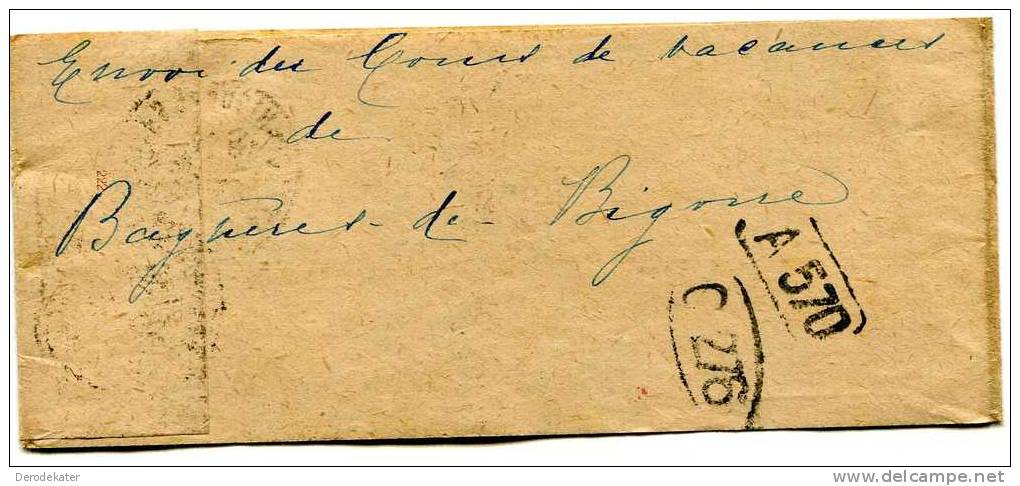 Envoi du Cours de vacances
de
Bagnères-de-Bigorre
222
A 570
C 276
Derodekater
www.delcampe.net